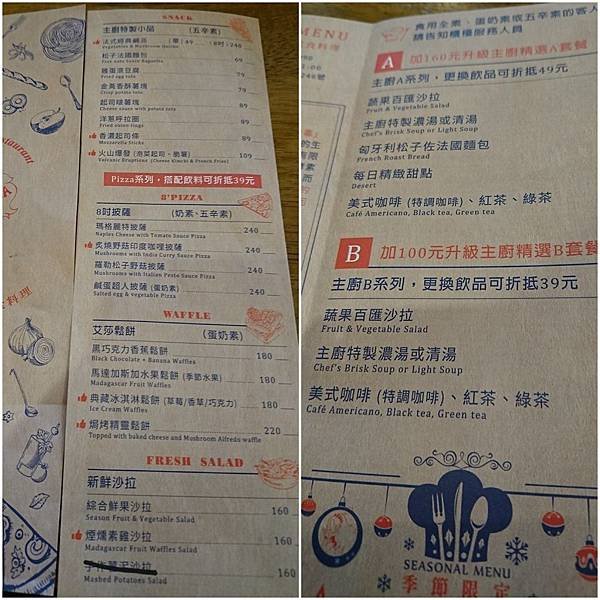 SNACK
主廚特製小品 (五辛素)
法式經典鹹派
Vegetables & Mushroom Quiche
松子法國麵包 69
雞蛋滾豆腐 69
Fried egg tofu
金黃香酥薯塊 79
Crisp potato tots
起司啵薯塊 89
Cheese sauce with potato tots
洋蔥呼拉圈 89
Fried onion rings
香濃起司條 89
Mozzarella Sticks
火山爆發 (泡菜起司、脆薯) 109
Volcanic Eruptions (Cheese Kimchi & French Fries)
Pizza系列，搭配飲料可折抵39元
8"PIZZA
8吋披薩 (奶素、五辛素)
瑪格麗特披薩 240
Naples Cheese with Tomato Sauce Pizza
炙燒野菇印度咖哩披薩 240
Mushrooms with India Curry Sauce Pizza
羅勒松子野菇披薩 240
Mushrooms with Italian Pesto Sauce Pizza
鹹蛋超人披薩 (蛋奶素) 240
Salted egg & vegetable Pizza
WAFFLE
艾莎鬆餅 (蛋奶素)
黑巧克力香蕉鬆餅 180
Black Chocolate + Banana Waffles
馬達加斯加水果鬆餅 (季節水果) 180
Madagascar Fruit Waffles
典藏冰淇淋鬆餅 (草莓/香草/巧克力) 180
Ice Cream Waffles
焗烤精靈鬆餅 220
Topped with baked cheese and Mushroom Alfredo waffle
FRESH SALAD
新鮮沙拉
綜合鮮果沙拉 160
Season Fruit & Vegetable Salad
煙燻素雞沙拉 160
Madagascar Fruit Waffles Salad
手作薯泥沙拉 160
Mashed Potatoes Salad
MENU
食用全素、蛋奶素或五辛素的客人
請告知櫃檯服務人員
A 加160元升級主廚精選A套餐
主廚A系列，更換飲品可折抵49元
蔬果百匯沙拉
Fruit & Vegetable Salad
主廚特製濃湯或清湯
Chef's Brisk Soup or Light Soup
匈牙利松子佐法國麵包
French Roast Bread
每日精緻甜點
Desert
美式咖啡 (特調咖啡)、紅茶、綠茶
Café Americano, Black tea, Green tea
B 加100元升級主廚精選B套餐
主廚B系列，更換飲品可折抵39元
蔬果百匯沙拉
Fruit & Vegetable Salad
主廚特製濃湯或清湯
Chef's Brisk Soup or Light Soup
美式咖啡 (特調咖啡)、紅茶、綠茶
Café Americano, Black tea, Green tea
SEASONAL MENU
季節限定